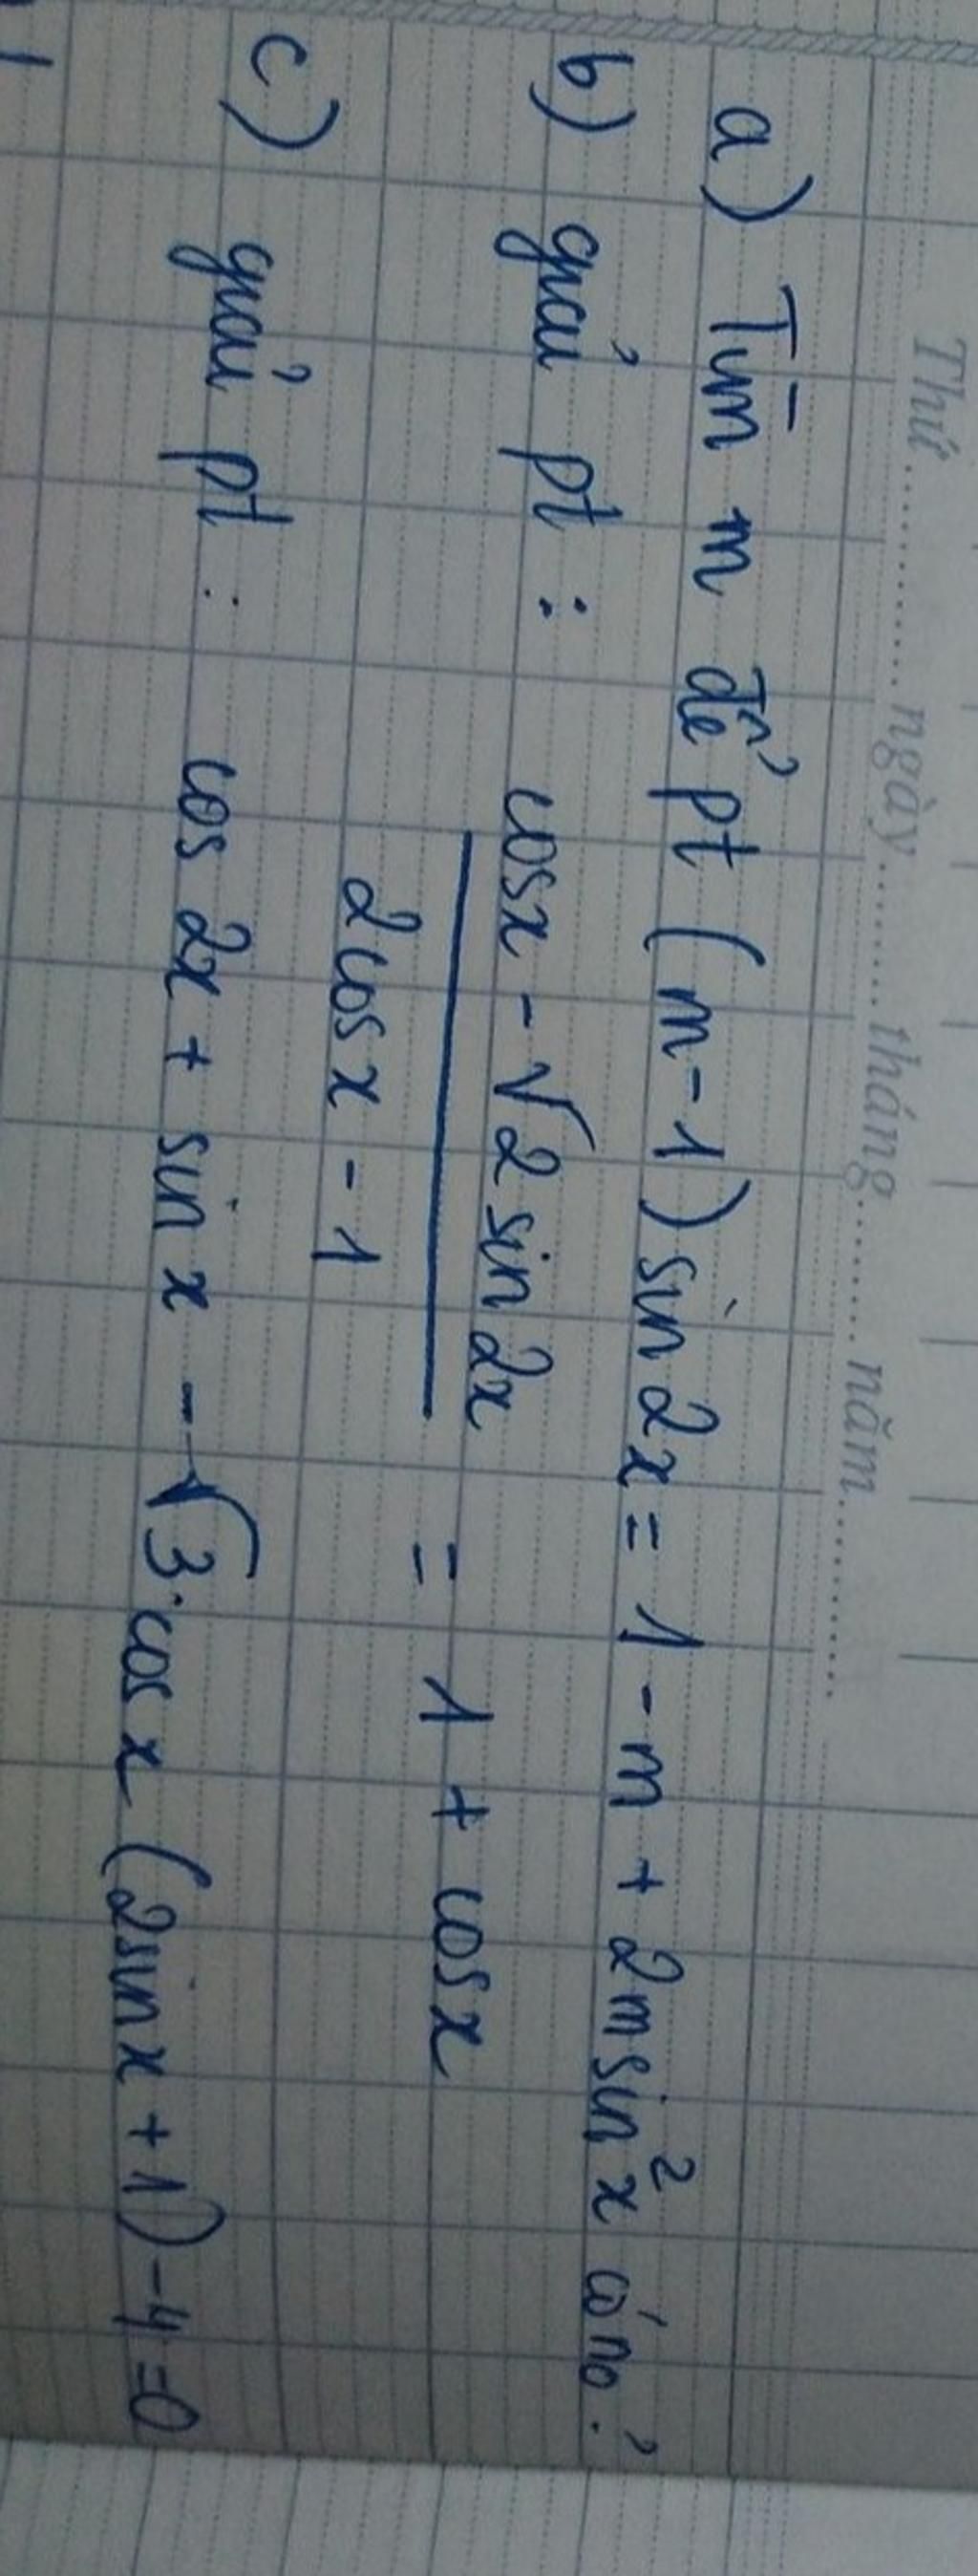 Thứ ........... ngày ........... tháng ........... năm ...........
a) Tìm m để pt (m-1) sin 2x = 1 - m + 2m sin² x có no?
b) giải pt : (cosx - √2 sin 2x) / (2cos x - 1) = 1 + cos x
c) giải pt : cos 2x + sin x - √3.cos x (2sin x + 1) - 4 = 0